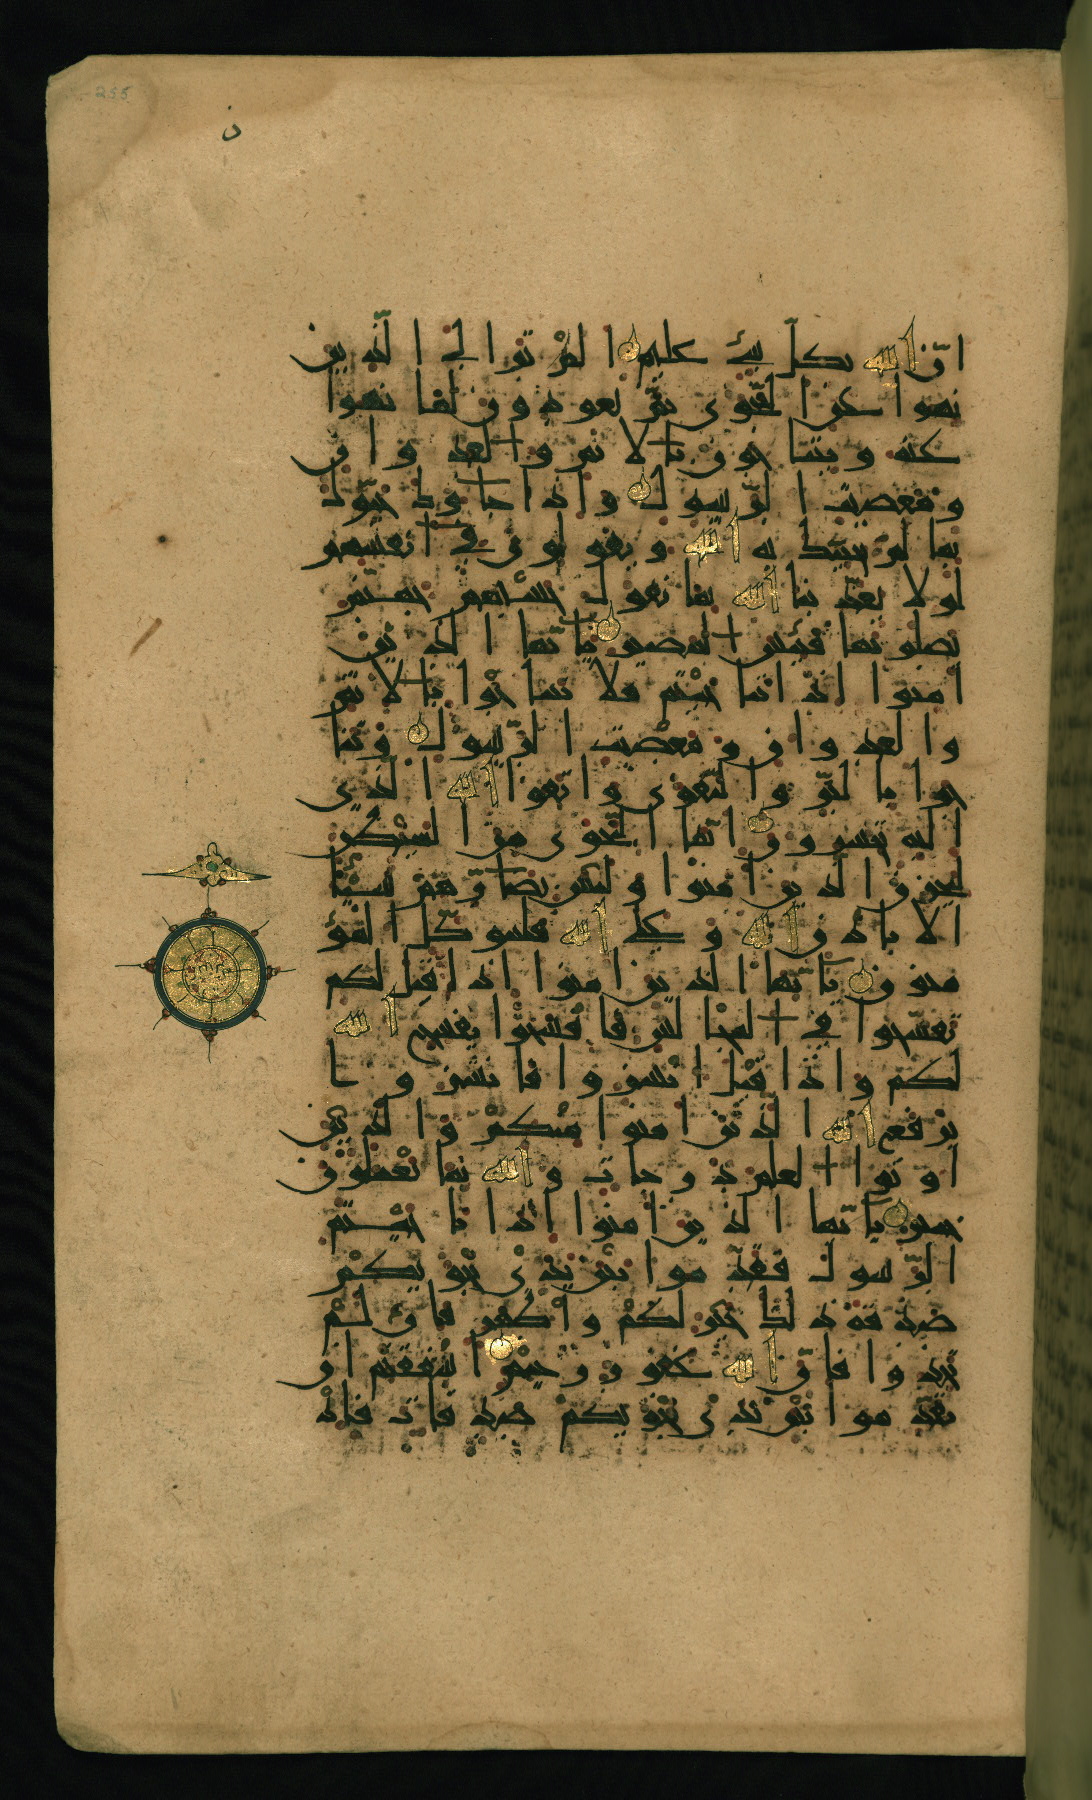 255
ن
انّ الله بكلّ شيء عليم الم تر الى الّذين
نهوا عن النّجوى ثمّ يعودون لما نهوا
عنه ويتناجون بالاثم والعدوان
ومعصيت الرّسول واذا جاوك حيّوك
بما لم يحيّك به الله ويقولون في انفسهم
لولا يعذّبنا الله بما نقول حسبهم جهنّم
يصلونها فبئس المصير يايّها الذين
امنوا اذا تناجيتم فلا تتناجوا بالاثم
والعدوان ومعصيت الرّسول وتنا
جوا بالبّر والتّقوى واتّقوا الله الذي
اليه تحشرون انّما النّجوى من الشيطن
ليحزن الذين امنوا وليس بضارّهم شيئا
الا باذن الله وعلى الله فليتوكّل المؤ
منون يايّها الذين امنوا اذا قيل لكم
تفسّحوا في المجالس فافسحوا يفسح الله
لكم واذا قيل انشزوا فانشزوا
يرفع الله الذين امنوا منكم والذين
اوتوا العلم درجات والله بما تعملون
خبير يايّها الذين امنوا اذا ناجيتم
الرّسول فقدّموا بين يدي نجويكم
صدقة ذلك خير لكم واطهر فان لم
تجدوا فانّ الله غفور رحيم ااشفقتم ان
تقدّموا بين يدي نجويكم صدقات فاذ